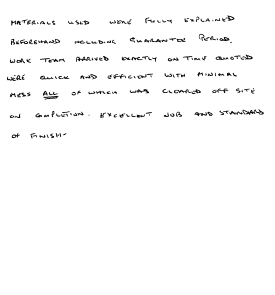 MATERIALS USED WERE FULLY EXPLAINED
BEFOREHAND INCLUDING GUARANTEE PERIOD.
WORK TEAM ARRIVED EXACTLY ON TIME QUOTED
WERE QUICK AND EFFICIENT WITH MINIMAL
MESS ALL OF WHICH WAS CLEARED OFF SITE
ON COMPLETION. EXCELLENT JOB AND STANDARD
OF FINISH-